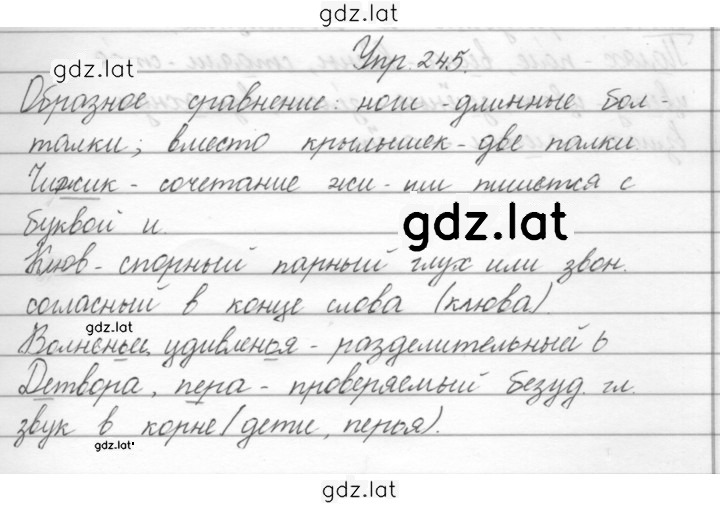 gdz.lat
Упр. 245.
gdz.lat
Образное сравнение: ноги - длинные бол-
талки; вместо крылышек - две палки
Чижик - сочетание жи - ши пишется с
буквой и.
gdz.lat
Клюв - спорный парный глух или звон.
согласный в конце слова (клюва).
gdz.lat
Волненьи, удивленья - разделительный ь
Детвора, пера - проверяемый безуд. гл.
звук в корне (дети, перья).
gdz.lat
gdz.lat